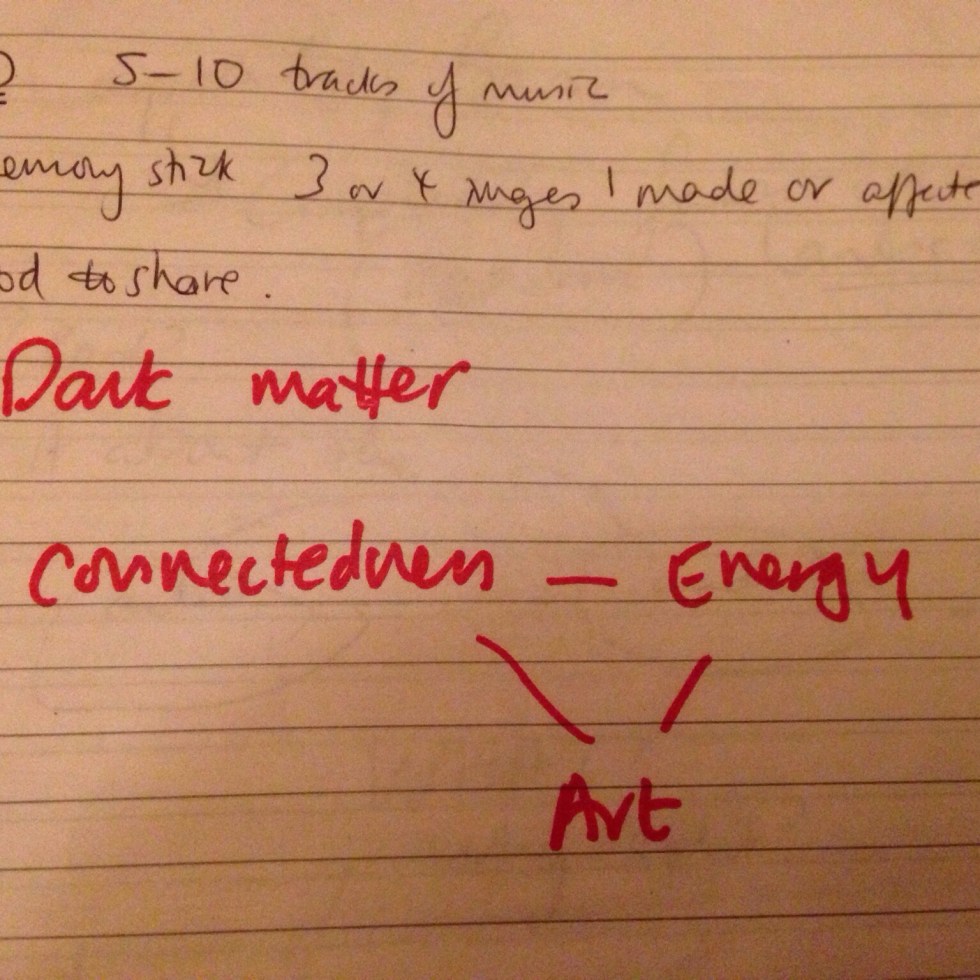 5-10 tracks of music
emory stick 3 or 4 images I made or affecte
od to share.
Dark matter
Connectedness — Energy
Art